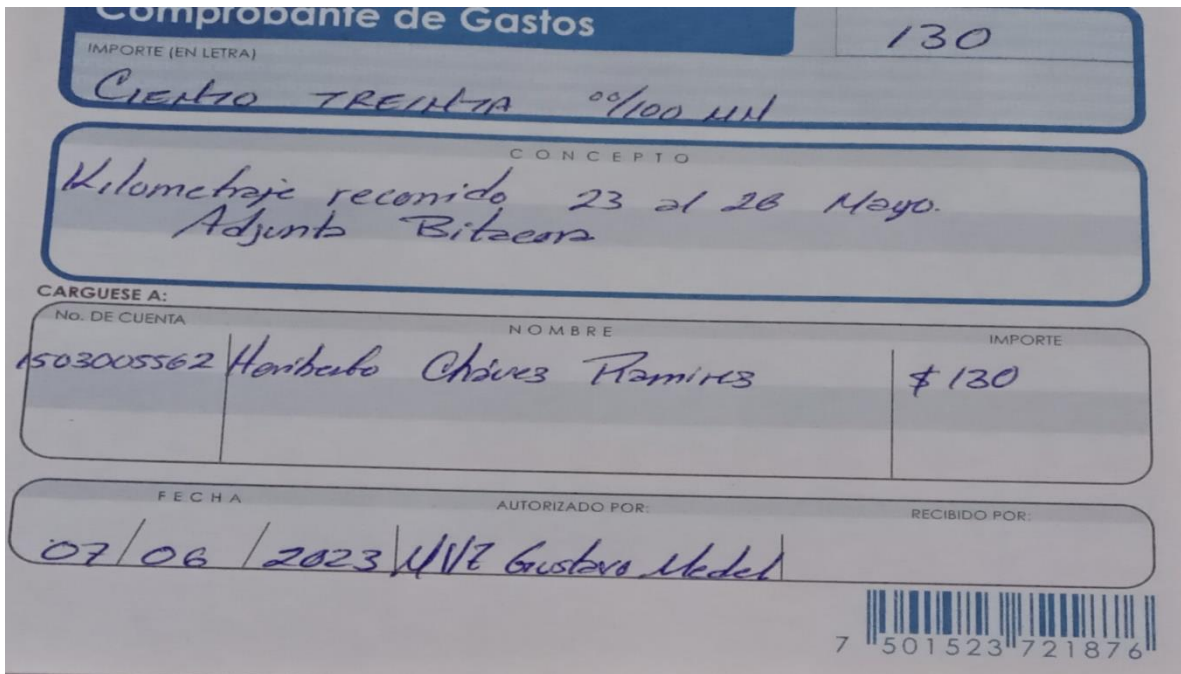 Comprobante de Gastos
130
IMPORTE (EN LETRA)
CIENTO TREINTA 00/100 MN
CONCEPTO
Kilometraje recorrido 23 al 26 Mayo.
Adjunto Bitacora
CARGUESE A:
No. DE CUENTA NOMBRE IMPORTE
1503005562 Heriberto Cháves Ramires $ 130
FECHA AUTORIZADO POR: RECIBIDO POR:
07/06/2023 MVZ Gustavo Medel
7 501523 721876